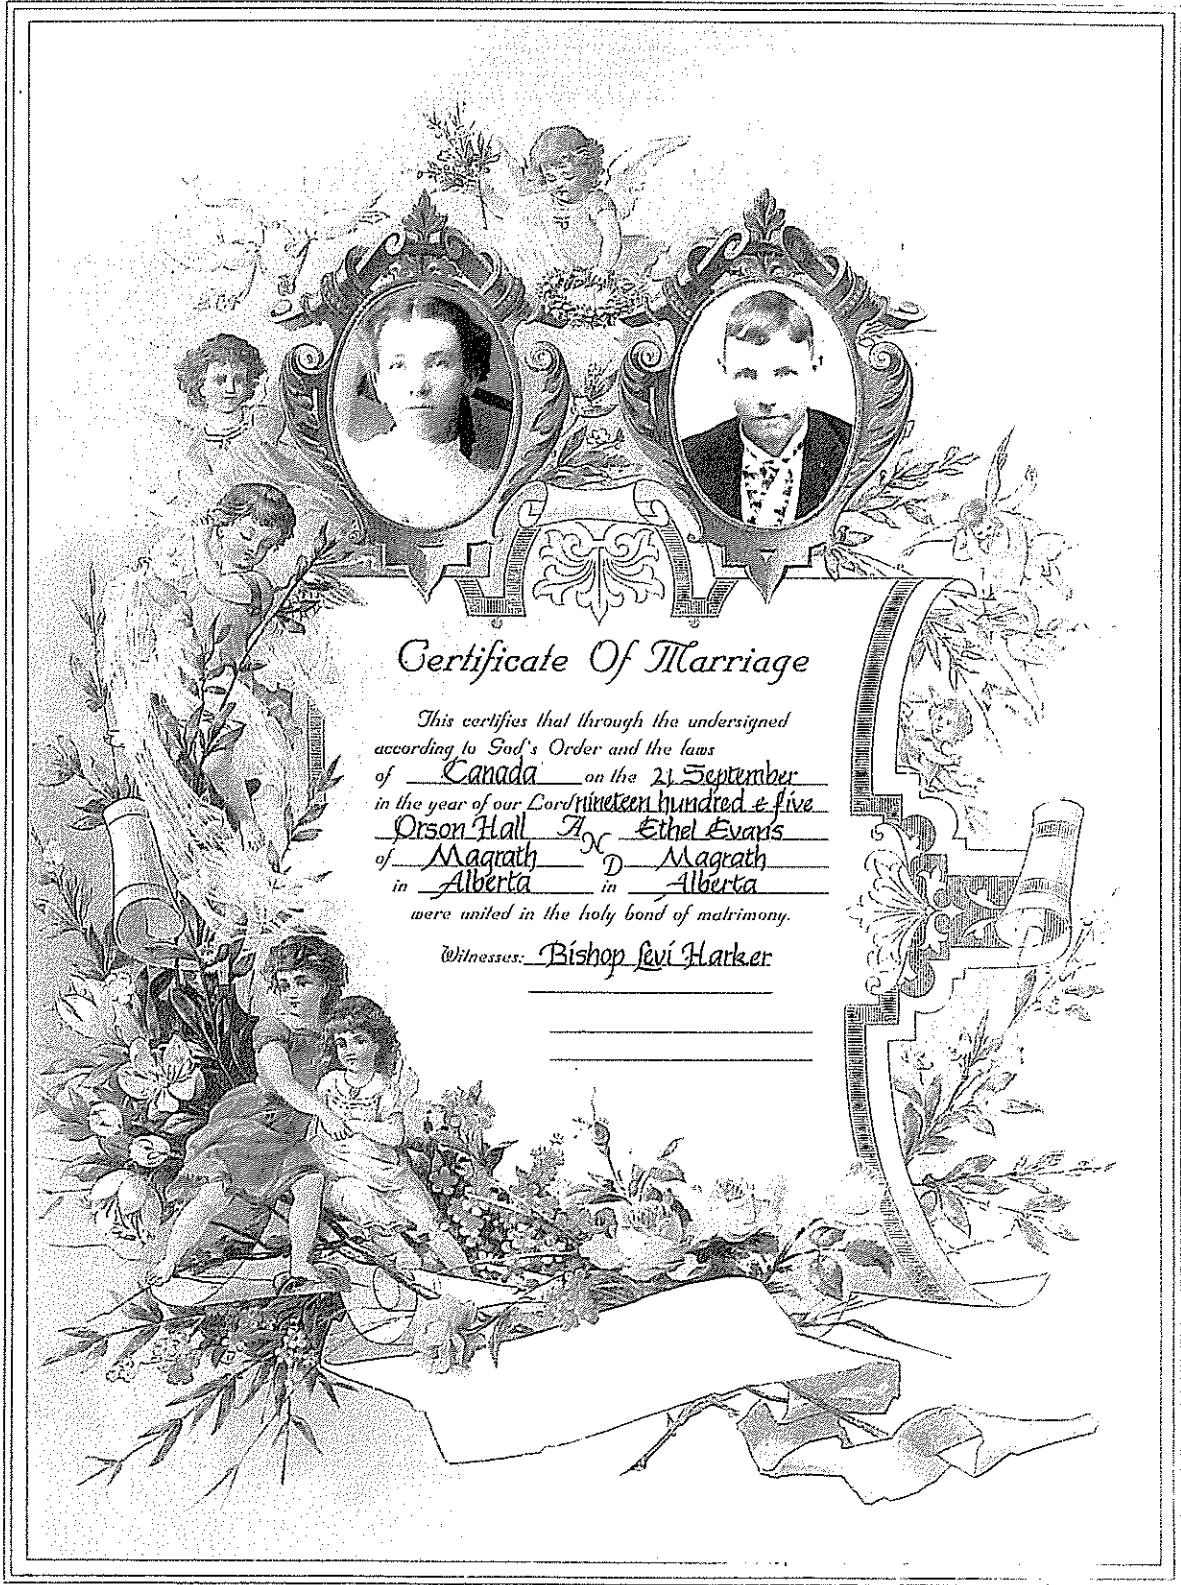 Certificate Of Marriage
This certifies that through the undersigned
according to God's Order and the laws
of Canada on the 21 September
in the year of our Lord nineteen hundred & five
Orson Hall AND Ethel Evans
of Magrath Magrath
in Alberta in Alberta
were united in the holy bond of matrimony.
Witnesses: Bishop Levi Harker